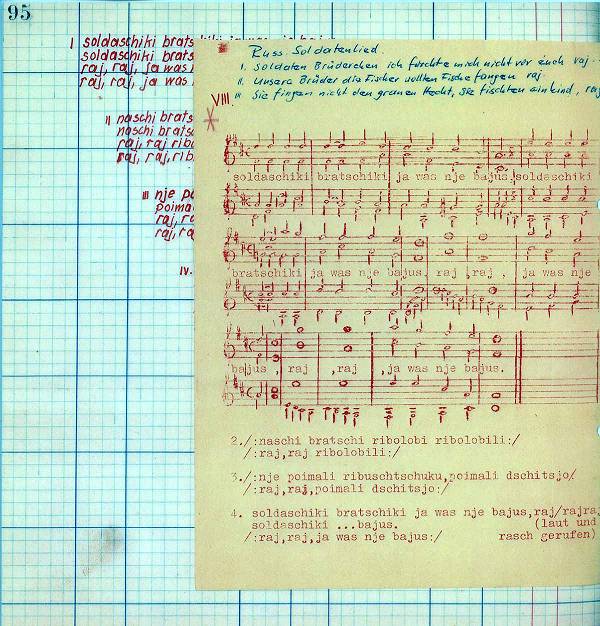 95
I soldaschiki bratschiki
soldaschiki brats
raj, raj, ja was
raj, raj, ja was
II naschi brats
naschi brats
raj, raj ribo
raj, raj, rib
III nje po
poima
raj, ra
raj, ra
IV.
Russ. Soldatenlied.
I. Soldaten Brüderchen ich fürchte mich nicht vor euch raj
II. Unsere Brüder die Fischer wollten Fische fangen raj
III Sie fingen nicht den grauen Hecht, sie fischten ein kind, raj
VIII.
soldaschiki bratschiki ja was nje bajus, soldaschiki
bratschiki ja was nje bajus, raj , raj , ja was nje
bajus , raj , raj , ja was nje bajus.
2./:naschi bratschi ribolobi ribolobili:/
/:raj,raj ribolobili:/
3./:nje poimali ribuschtschuku,poimali dschitsjo/
/:raj,raj,poimali dschitsjo:/
4. soldaschiki bratschiki ja was nje bajus,raj/rajra
soldaschiki ...bajus. (laut und
/:raj,raj,ja was nje bajus:/ rasch gerufen)